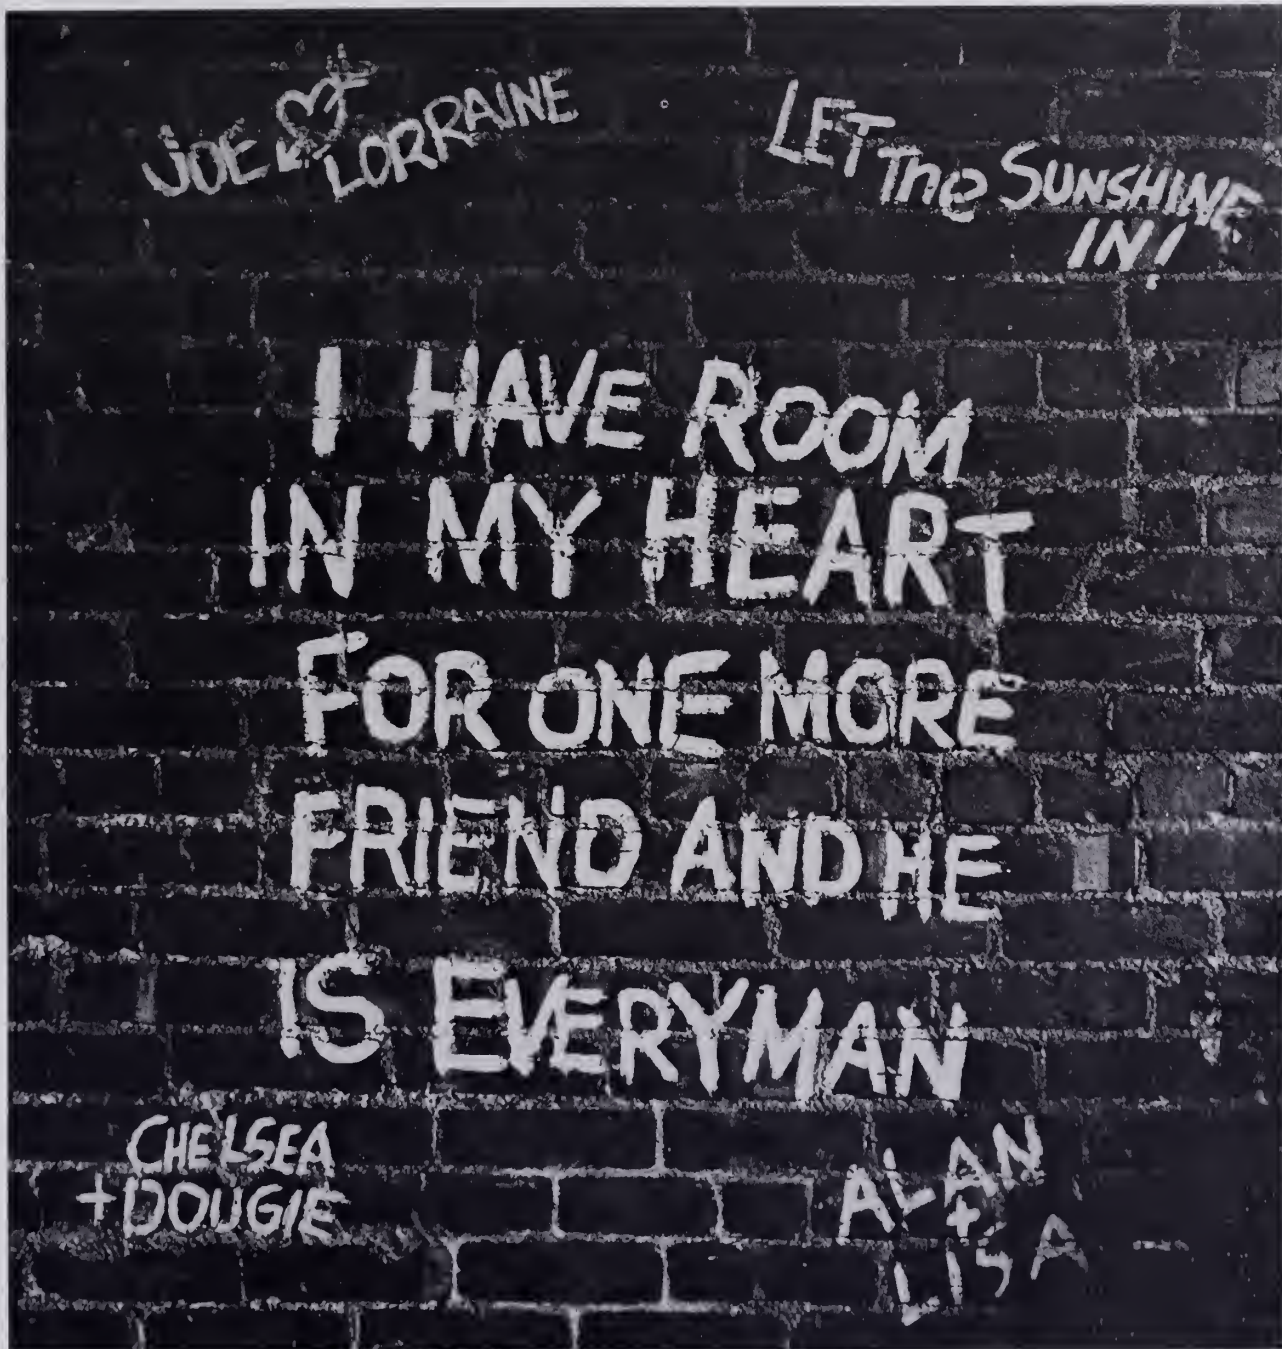 JOE LORRAINE
LET The SUNSHINE
IN!
I HAVE ROOM
IN MY HEART
FOR ONE MORE
FRIEND AND HE
IS EVERYMAN
CHELSEA
+ DOUGIE
ALAN
+
LISA